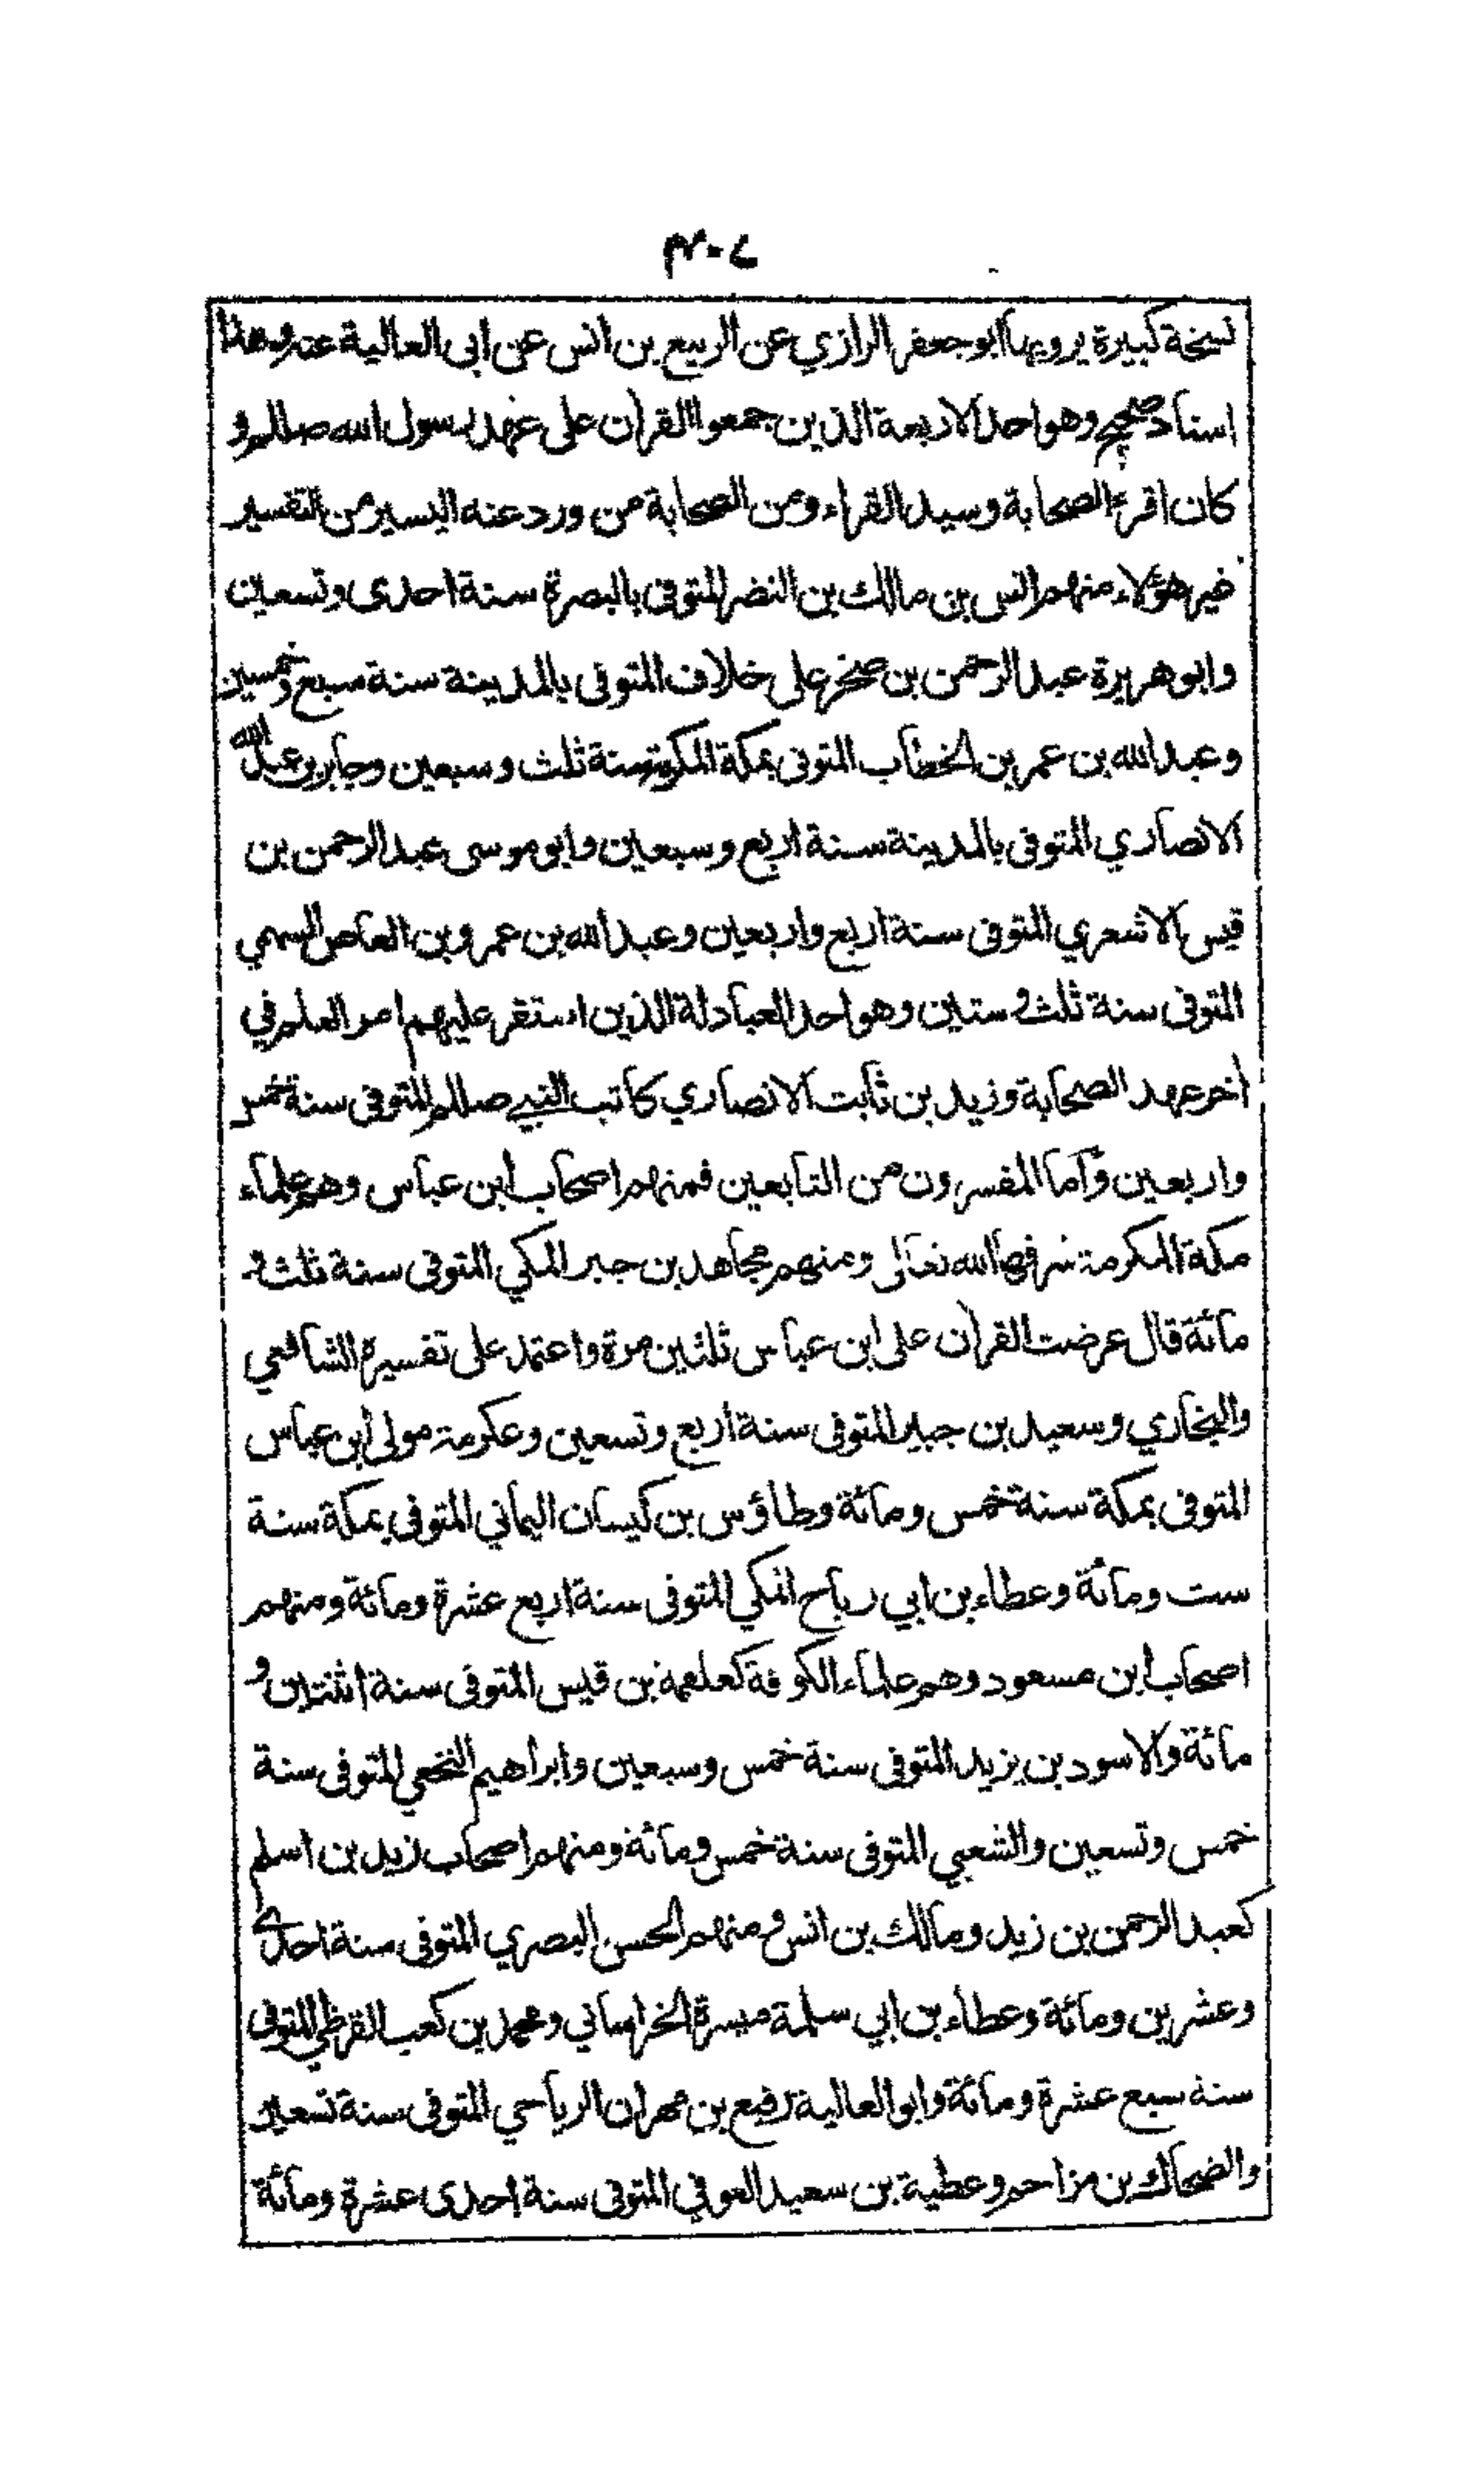 ٣٠٧
نسخة كبيرة يرويها ابو جعفر الرازي عن الربيع بن انس عن ابى العالية عنه وهذا
اسناد صحيح وهو احد الاربعة الذين جمعوا القران على عهد رسول الله صللم و
كان اقرء الصحابة وسيد القراء ومن الصحابة من ورد عنه اليسير من التفسير
غير هؤلاء منهم انس بن مالك بن النضر المتوفى بالبصرة سنة احدى وتسعين
وابو هريرة عبد الرحمن بن صخر على خلاف المتوفى بالمدينة سنة سبع وخمسين
وعبد الله بن عمر بن الخطاب المتوفى بمكة المكرمة سنة ثلث وسبعين وجابر بن عبد الله
الانصاري المتوفى بالمدينة سنة اربع وسبعين وابو موسى عبد الرحمن بن
قيس الاشعري المتوفى سنة اربع واربعين وعبد الله بن عمرو بن العاص السهمي
المتوفى سنة ثلث وستين وهو احد العبادلة الذين استقر عليهم امر العلم في
اخر عهد الصحابة وزيد بن ثابت الانصاري كاتب النبي صللم المتوفى سنة خمس
واربعين وآما المفسرون من التابعين فمنهم اصحاب ابن عباس وهم علماء
مكة المكرمة شرفها الله تعالى ومنهم مجاهد بن جبر المكي المتوفى سنة ثلث و
مائة قال عرضت القران على ابن عباس ثلثين مرة واعتمد على تفسيره الشافعي
والبخاري وسعيد بن جبير المتوفى سنة اربع وتسعين وعكرمة مولى ابن عباس
المتوفى بمكة سنة خمس ومائة وطاؤس بن كيسان اليماني المتوفى بمكة سنة
ست ومائة وعطاء بن ابي رباح المكي المتوفى سنة اربع عشرة ومائة ومنهم
اصحاب ابن مسعود وهم علماء الكوفة كعلقمة بن قيس المتوفى سنة اثنتين و
مائة والاسود بن يزيد المتوفى سنة خمس وسبعين وابراهيم النخعي المتوفى سنة
خمس وتسعين والشعبي المتوفى سنة خمس ومائة ومنهم اصحاب زيد بن اسلم
كعبد الرحمن بن زيد ومالك بن انس ومنهم الحسن البصري المتوفى سنة احدى
وعشرين ومائة وعطاء بن ابي سلمة ميسرة الخراساني ومحمد بن كعب القرظي المتوفى
سنة سبع عشرة ومائة وابو العالية رفيع بن مهران الرياحي المتوفى سنة تسعين
والضحاك بن مزاحم وعطية بن سعيد العوفي المتوفى سنة احدى عشرة ومائة